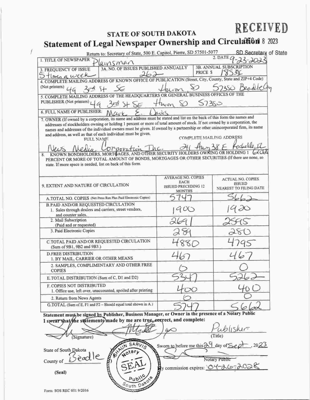 RECEIVED
STATE OF SOUTH DAKOTA
Statement of Legal Newspaper Ownership and Circulation
8 2023
Return to: Secretary of State, 500 E. Capitol, Pierre, SD 57501-5077
SD Secretary of State
1. TITLE OF NEWSPAPER
2. DATE
Plainsman
9-23-2023
3. FREQUENCY OF ISSUE
3A. NO. OF ISSUES PUBLISHED ANNUALLY
3B. ANNUAL SUBSCRIPTION
PRICE $
262
4. COMPLETE MAILING ADDRESS OF KNOWN OFFICE OF PUBLICATION (Street, City, County, State and ZIP+4 Code)
(Not printers)
49 3rd St SE Huron SD 57350 Beadle
5. COMPLETE MAILING ADDRESS OF THE HEADQUARTERS OR GENERAL BUSINESS OFFICES OF THE
PUBLISHER (Not printer)
49 3rd St SE Huron SD 57350
6. FULL NAME OF PUBLISHER:
Mark Davis
7. OWNER (If owned by a corporation, its name and address must be stated and
addresses of stockholders owning or holding 1 percent or more of total amount of stock. If not owned by a corporation, the
names and addresses of the individual owners must be given. If owned by a partnership or other unincorporated firm, its name
and address, as well as that of each individual must be given.
FULL NAME
COMPLETE MAILING ADDRESS
News Media Corporation Inc
8. KNOWN BONDHOLDERS, MORTGAGES, AND OTHER SECURITY HOLDERS OWNING OR HOLDING 1
PERCENT OR MORE OF TOTAL AMOUNT OF BONDS, MORTGAGES OR OTHER SECURITIES (If there are none, so
state. If more space is needed, list on back of this form
9. EXTENT AND NATURE OF CIRCULATION
AVERAGE NO. COPIES
EACH
ISSUED PRECEDING 12
MONTHS
ACTUAL NO. COPIES
ISSUED
NEAREST TO FILING DATE
A. TOTAL NO. COPIES
5747
5662
B. PAID AND/OR REQUESTED CIRCULATION
1. Sales through dealers and carriers, street vendors,
and counter sales.
1900
1920
2. Mail Subscription
(Paid and or requested)
2691
2595
3. Paid Electronic Copies
289
280
C. TOTAL PAID AND/OR REQUESTED CIRCULATION
(Sum of 9B1, 9B2 and 9B3)
4880
4795
D. FREE DISTRIBUTION
1. BY MAIL, CARRIER OR OTHER MEANS
467
467
2. SAMPLES, COMPLIMENTARY AND OTHER FREE
COPIES
0
0
E. TOTAL DISTRIBUTION (Sum of C, D1 and D2)
5347
5262
F. COPIES NOT DISTRIBUTED
1. Office use, left over, unaccounted, spoiled after printing
400
400
2. Return from News Agents
0
0
G. TOTAL (Sum of E, F1 and F2 - Should equal total shown in A.)
5747
5662
Statement must be signed by Publisher, Business Manager, or Owner in the presence of a Notary Public
I swear that the statements made by me are true, correct, and complete:
Publisher
(Signature)
(Title)
State of South Dakota
Sworn to before me this day of Sept 2023
County of Beadle
Notary Public
(Seal)
My commission expires:
NOTARY
SEAL
PUBLIC
South Dakota